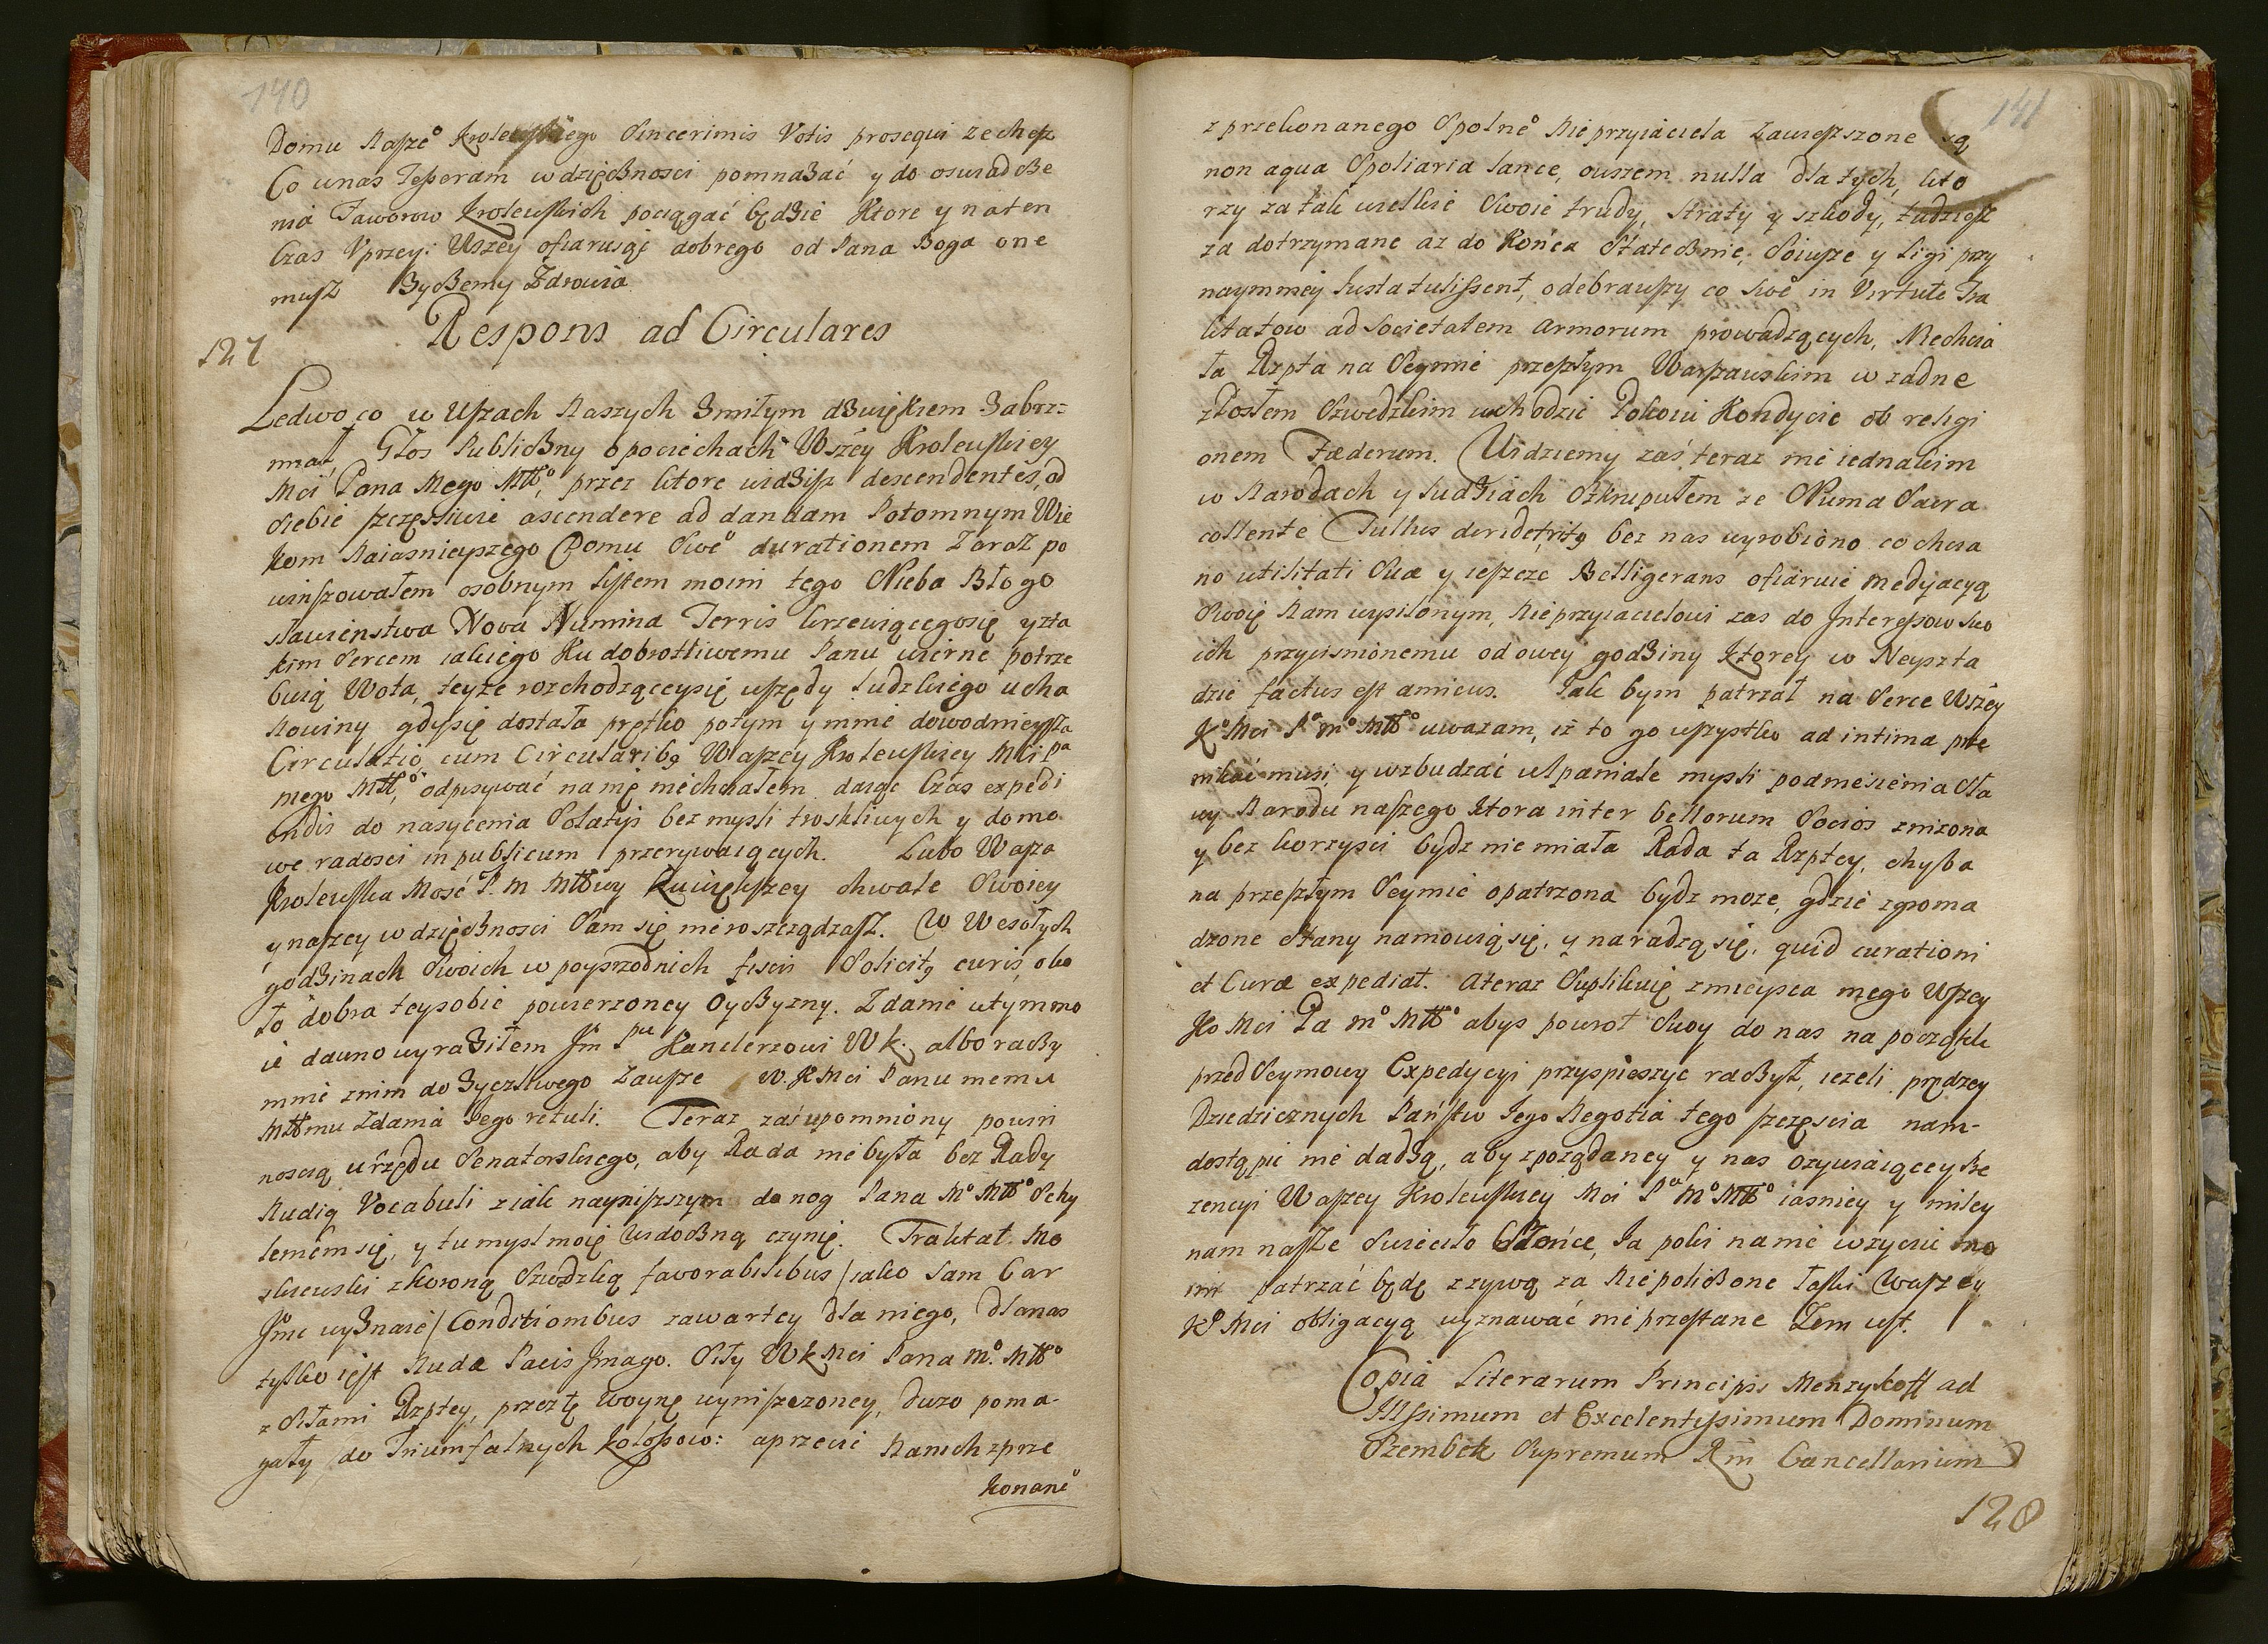 140
Domu Naszeº Krolewskiego Sincerimis Votis prosequi zechesz
Co unas Tesseram wdzięcznosci pomnażać y do oswiadcze
nia Faworow Krolewskich pociągać będzie Ktore y naten
Czas Vprzey: Wszey ofiarując dobrego od Pana Boga one
musz Zyczemy Zdrowia
Respons ad Circulares
127
Ledwo co w Uszach Naszych Zmiłym dzwiękiem Zabrz=
miał Głos Publiczny o pociechach Wszey Krolewskiey
Mci Pana Mego Mttº, przez ktore widzisz descendentes, od
siebie szczęsliwie ascendere ad dandam Potomnym Wie
kom Naiasnieyszego Domu Sweº durationem Zaraz po
winszowałem osobnym listem moim tego Nieba Błogo
sławienstwa Nova Numina Terris krzewiącegosię y zta
kim Sercem iakiego Ku dobrotliwemu Panu wierne potrze
buią Wota, teyze rozchodząceysię wszędy ludzkiego ucha
Nowiny gdysię dostała prętko potym y mnie dowodnieysza
Circulatio cum Circularibq Waszey Krolewskiey Mci Pª
mego Mtt,º odpisywać namę niechciałem daiąc Czas expedi
endis do nasycenia Solatys bez mysli troskliwych y domo
we radosci in publicum przerywaiących. Lubo Wasza
Krolewska Mosć P. M Mttwy Kuwiększey chwale Swoiey
y naszey wdzięcznosci Sam się nieroszcządzasz. W Wesołych
godzinach Swoich w poysrzodnich Solicitq curis, oko
ło dobra teysobie powierzoney Oyczyzny. Zdanie wtymmo
ie dawno wyraziłem Jm Pnu Kanclerzowi Wk. albo raczy
mnie znim do zyczliwego Zausze W. K Mci Panu memu
Mttmu Zdania Jego retuli. Teraz zaś upomniony powin
noscią urzędu Senatorskiego, aby Rada niebyła bez Rady
Nudią Vocabuli ziak nayniszszym do nog Pana Mº Mttº Schy
leniem się, y tu mysl moię widoczną czynię. Traktat Mo
skiewski zkoroną Szwedzką favorabilibus / iako Sam Car
Jmc wyznaie / Conditionibus zawartey dla niego, dlanas
tylko iest Nuda Pacis Jmago. Siły W K Mci Pana mº. Mttº
z Siłami Rzptey, przeztę woynę wyniszczoney, duzo poma-
gały do Triumfalnych Kolossow: a przecie Nanich zprze
konaneº
141
z przekonanego Spolneº Nieprzyiaciela Zawieszone są
non aqua Spoliaria lance, owszem nulla dla tych, kto
rzy za tak wielkie Swoie trudy, straty y szkody, tudziesz
za dotrzymane az do Końca Statecznie, Soiusze y Ligi przy
naymniey Iusta tulissent, odebrawszy co sweº in Virtute Tra
ktatow ad Societatem armorum prowadzących, Niechcia
ła Rzpta na Seymie przeszłym Warszawskim w zadne
zPosłem Szwedzkim wchodzic Pokoiu Kondycie ob religi
onem Fæderum. Widziemy zaś teraz nie iednakim
w Narodach y Ludziach Szkrupułem ze Numa Sacra
collente Tullus deridet, ritq bez nas wyrobiono co chcia
no utilitati Suæ y ieszcze Belligerans ofiaruie medyacyą
Swoię Nam wysilonym, Nieprzyiacielowi zas do Interessow swo
ich przycisnionemu od owey godziny Ktorey w Neyszta
dzie factus est amicus. Jak bym patrzał na Serce Wszey
Kº Mci Pª mº Mttº uwazam, iż to go wszystko ad intima prze
nikać musi y wzbudzać wspaniałe mysli podniesienia Sła
wy Narodu naszego Ktora inter bellorum Socios znizona
y bez korzysci bydz nie miała Rada ta Rzptey, chyba
na przeszłym Seymie opatrzona bydz moze, gdzie zgroma
dzone Stany namowią się, y naradzą się, quid curationi
et Curæ expediat. Ateraz Suplikuię zmieysca mego Wszey
Ko Mci Pa mº Mttº abys powrot Swoy do nas na początk
przed Seymowy Expedycyi przyspieszyc raczył, iezeli prędzey
Dziedzicznych Państw Jego Negotia tego szczęscia nam-
dostąpic nie dadzą, aby zpożądaney y nas ozywiaiącey Pre
zencyi Waszey Krolewskiey Mci Pª Mº Mttº iasniey y miley
nam nasze Swieciło Słońce, Ja poki namie wzycie mo
im patrzać będę zzywą za Niepoliczone Łaski Waszey
Kº Mci obligacyą wyznawać nie przestane Zem iest.
Copia Literarum Principis Menzykoff ad
Illssimum et Excelentissimum Dominum
Szembek Supremum Rni Cancellarium
128